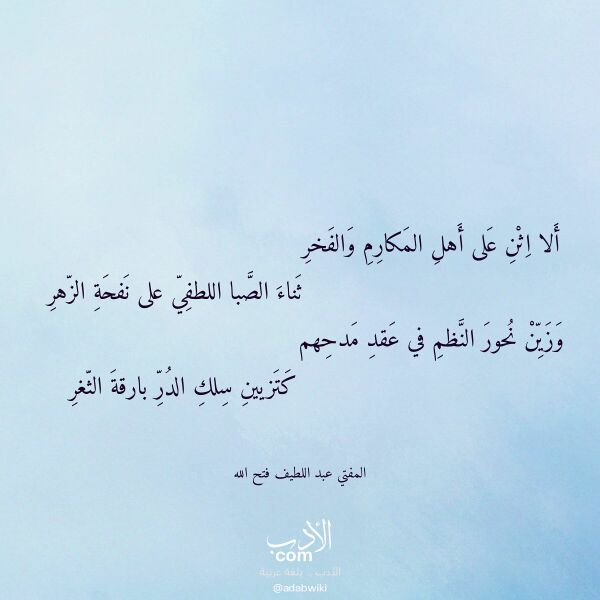 أَلا اِثْنِ عَلى أَهلِ المَكارِمِ وَالفَخرِ
ثَناءَ الصَّبا اللطفِيّ على نَفحَةِ الزّهرِ
وَزَيِّنْ نُحورَ النَّظمِ في عَقدِ مَدحِهم
كَتَزيينِ سِلكِ الدُرِّ بارقةَ الثّغرِ
المفتي عبد اللطيف فتح الله
الأدب
com
الأدب .. بلغة عربية
@adabwiki